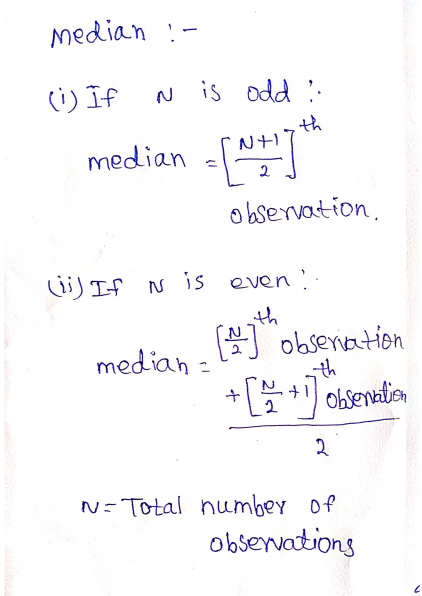 Median :-
(i) If N is odd :-
median = [N+1/2]th
observation.
(ii) If N is even :-
median = [N/2]th observation
+ [N/2 +1]th observation
2
N = Total number of
observations